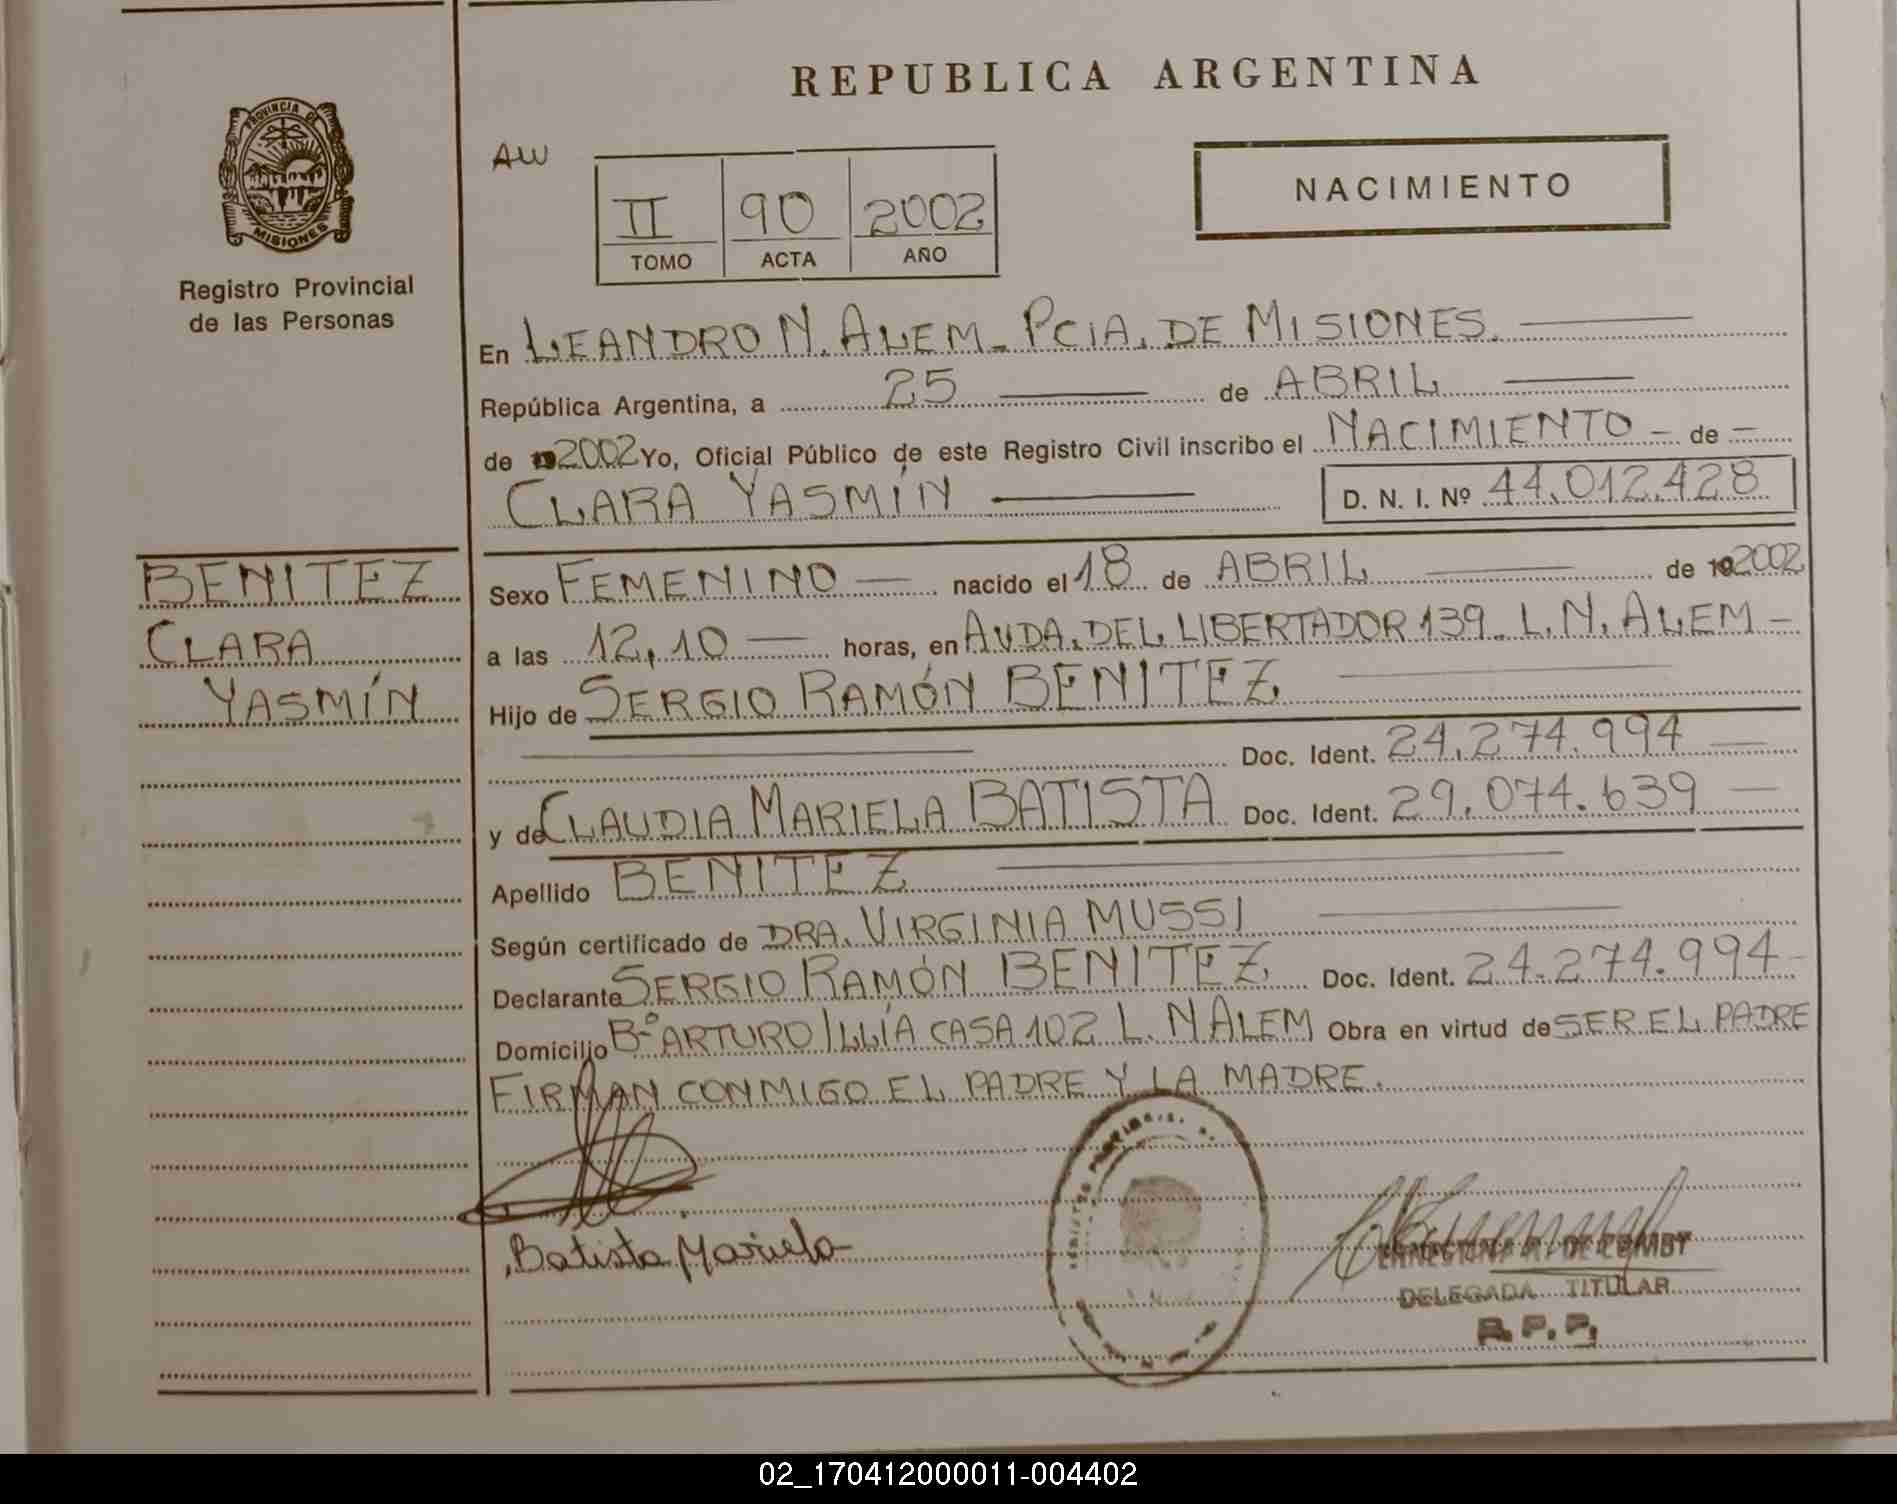 REPUBLICA ARGENTINA
PROVINCIA DE MISIONES
Registro Provincial
de las Personas
AW
II 90 2002
TOMO ACTA AÑO
NACIMIENTO
En LEANDRO N. ALEM_ PCIA. DE MISIONES.
República Argentina, a 25 de ABRIL
de 2002 Yo, Oficial Público de este Registro Civil inscribo el NACIMIENTO - de -
CLARA YASMÍN D. N. I. Nº 44.012.428
BENITEZ
CLARA
YASMÍN
Sexo FEMENINO nacido el 18 de ABRIL de 192002
a las 12,10 horas, en AVDA. DEL LIBERTADOR 139_ L. N. ALEM -
Hijo de SERGIO RAMÓN BENITEZ
Doc. Ident. 24.274.994
y de CLAUDIA MARIELA BATISTA Doc. Ident. 29.074.639
Apellido BENITEZ
Según certificado de DRA. VIRGINIA MUSSI
Declarante SERGIO RAMÓN BENITEZ Doc. Ident. 24.274.994-
Domicilio Bº ARTURO ILLÍA CASA 102 L. N ALEM Obra en virtud de SER EL PADRE
FIRMAN CONMIGO EL PADRE Y LA MADRE.
Batista Mariela
DELEGADA TITULAR
R. P. P.
02_170412000011-004402